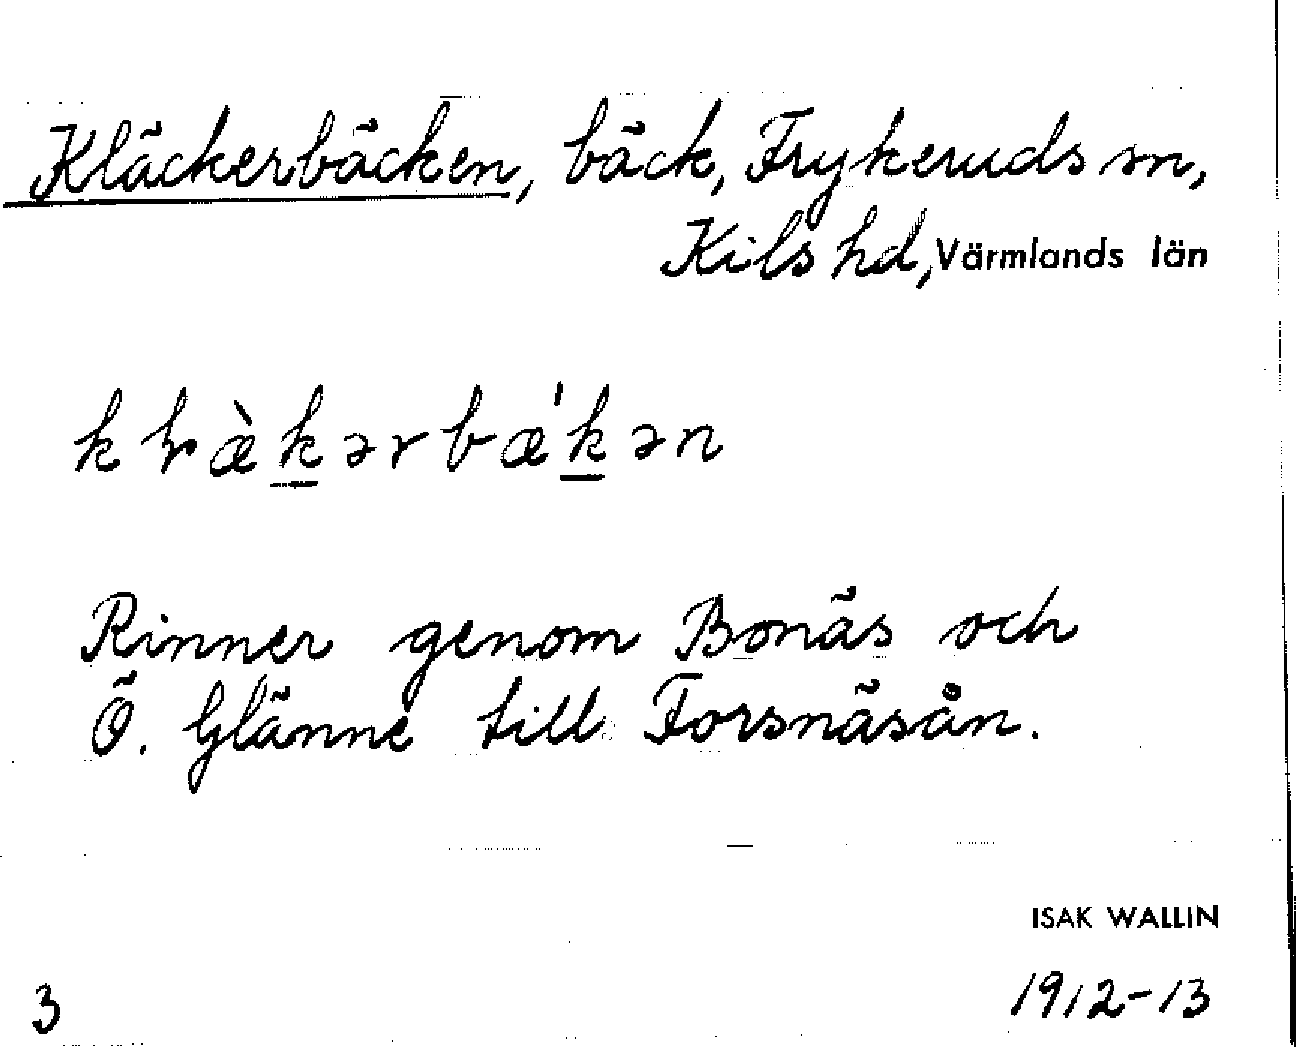 Kläckerbäcken, bäck, Frykeruds sn,
Kils hd, Värmlands län
kɽæ̀k̲ərbæ'k̲ən
Rinner genom Bonäs och
Ö. Glänne till Forsnäsån.
ISAK WALLIN
3 1912-13